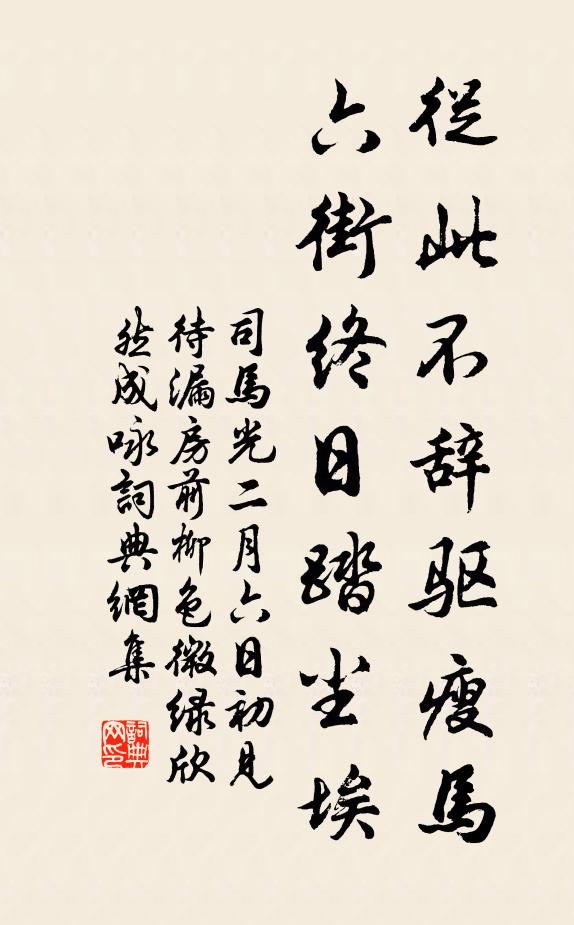 從此不辞驱瘦馬
六街终日踏尘埃
司馬光二月六日初見
待漏房前柳色微绿欣
然成咏詞典網集
詞典
网印